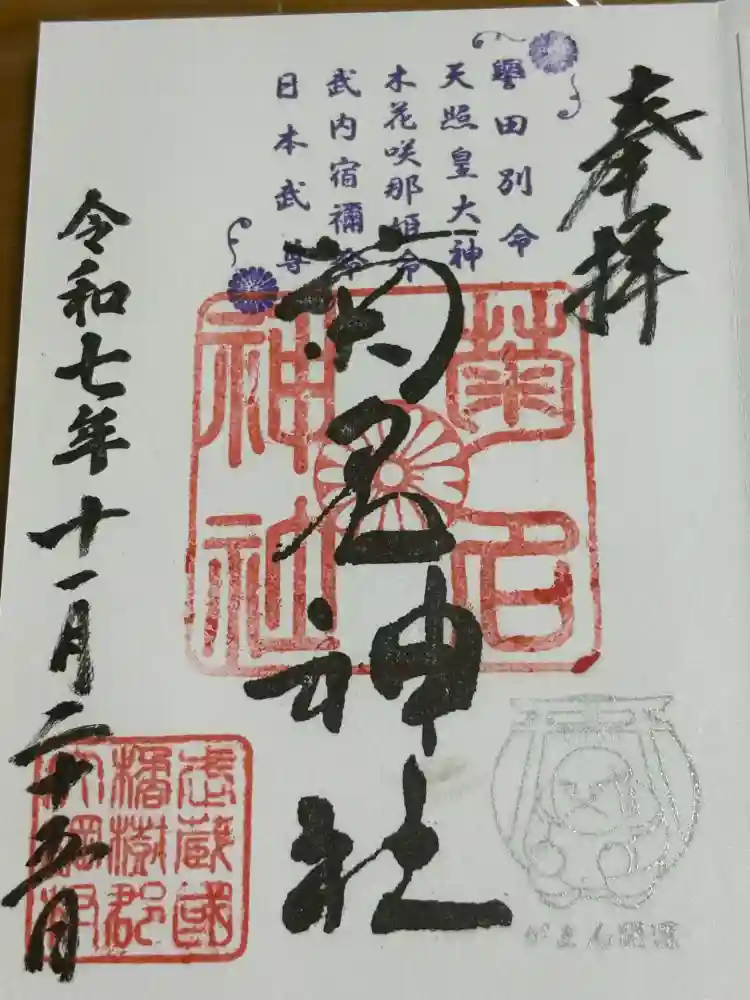 奉拝
譽田別命
天照皇大神
木花咲那姫命
武内宿禰命
日本武尊
菊名神社
菊名
神社
令和七年十一月二十五日
武蔵國
橘樹郡
大綱村
がまんさま